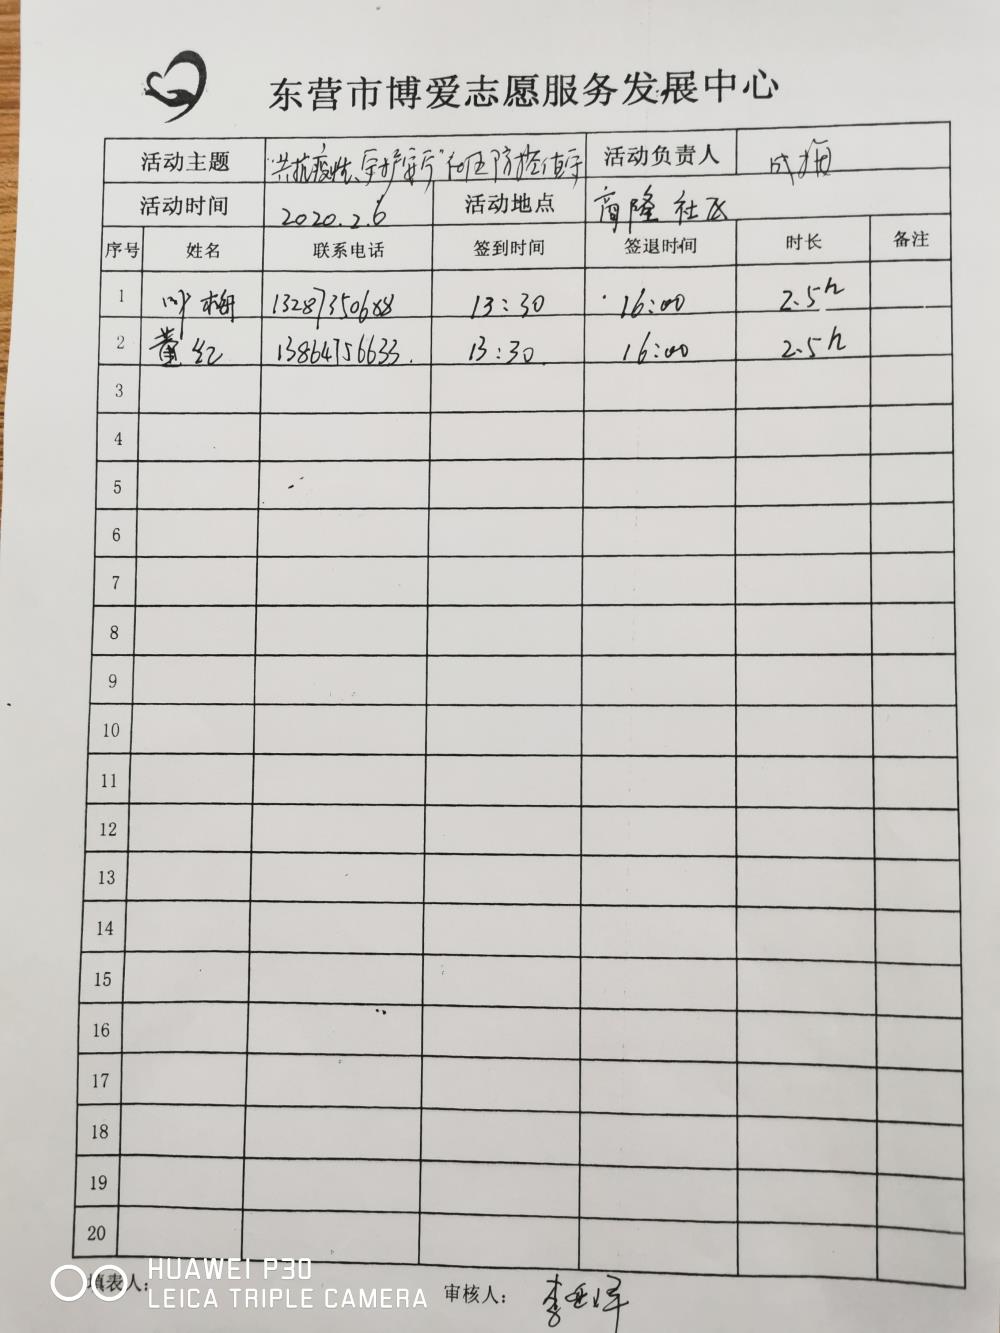 东营市博爱志愿服务发展中心
活动主题 "共抗疫情、守护安宁"社区防控值守 活动负责人
活动时间 2020.2.6 活动地点 商隆社区
序号 姓名 联系电话 签到时间 签退时间 时长 备注
1 叶梅 13287350688 13:30 16:00 2.5h
2 董红 13864756633 13:30 16:00 2.5h
3
4
5
6
7
8
9
10
11
12
13
14
15
16
17
18
19
20
填表人: 审核人:
HUAWEI P30
LEICA TRIPLE CAMERA